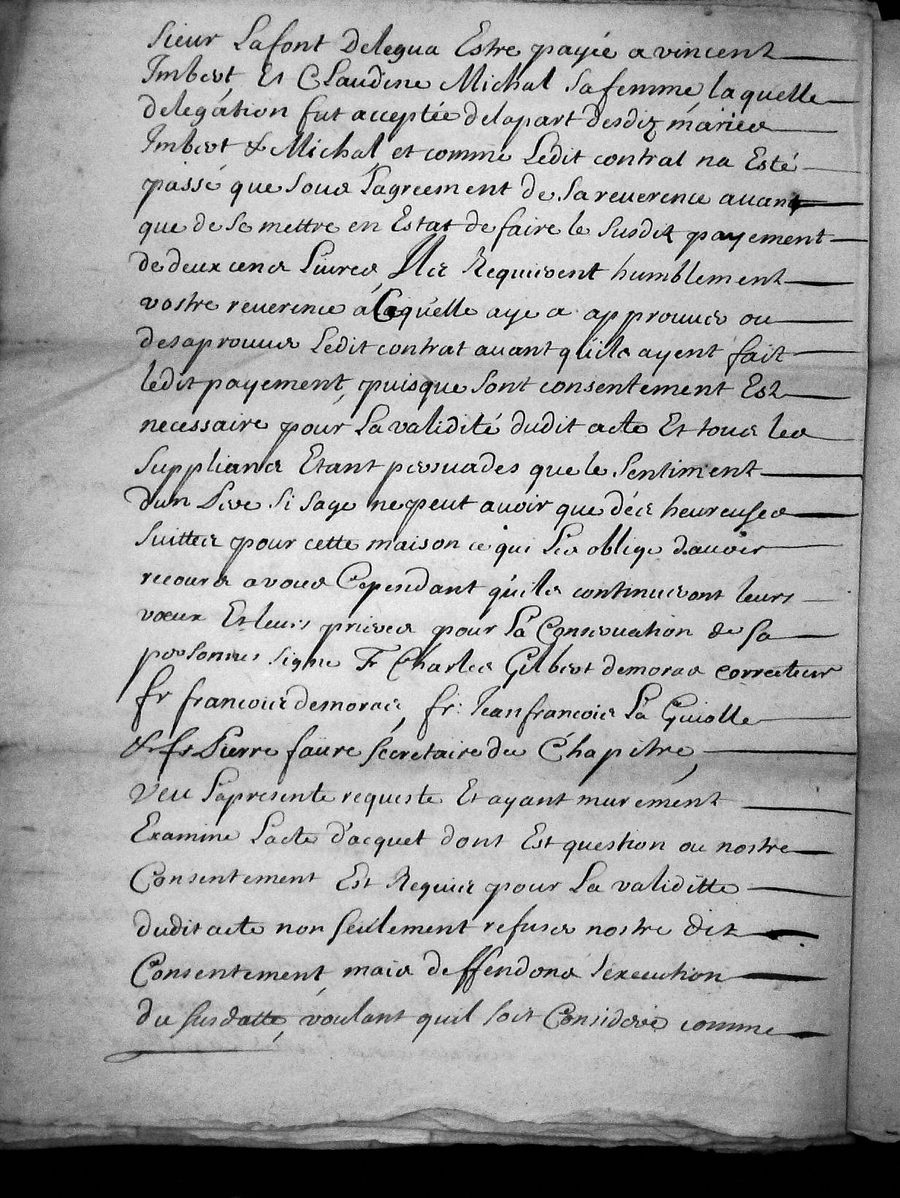 sieur Lafont delegua Estre payée a vincent
Imbert Et Claudine Michal sa femme laquelle
delegâtion fut acceptée delapart desdiz mâries
Imbert & Michal, et comme Ledit contrat na Esté
passé que sous Lagreement de Sa reverence avant
que de se mettre en Estat de faire le susdit payement
de deux cens Livres Ils Requierent humblement
vostre reverence à Laquelle aye a approuver ou
desaprouver Ledit contrat avant qu'ils ayent fait
ledit payement, puisque sont consentement Est
necessaire pour La validité dudit acte Et tous les
supplians Etant persuades que le sentiment
dun Pere si sage ne peut avoir que déis heureuses
suittes pour cette maison ce qui Les oblige davoir
recours a vous Cependant qu'ils continueront leurs
vœux Et leurs prieres pour La Conservation de sa
personnes signe Fr Charles Gilbert demoras correcteur
fr francois demorais, fr: Jean francois La Guiolle
& fr Pierre faure sécretaire du Chapitre,
Veu Lapresente requeste Et ayant murement
Examine Lacte d'acquet dont Est question ou nostre
Consentement Est Requis pour La validitte
dudit acte non seulement refuser nostre dit
Consentement, mais deffendons Lexecution
du susdatte, voulant quil soit Considere comme